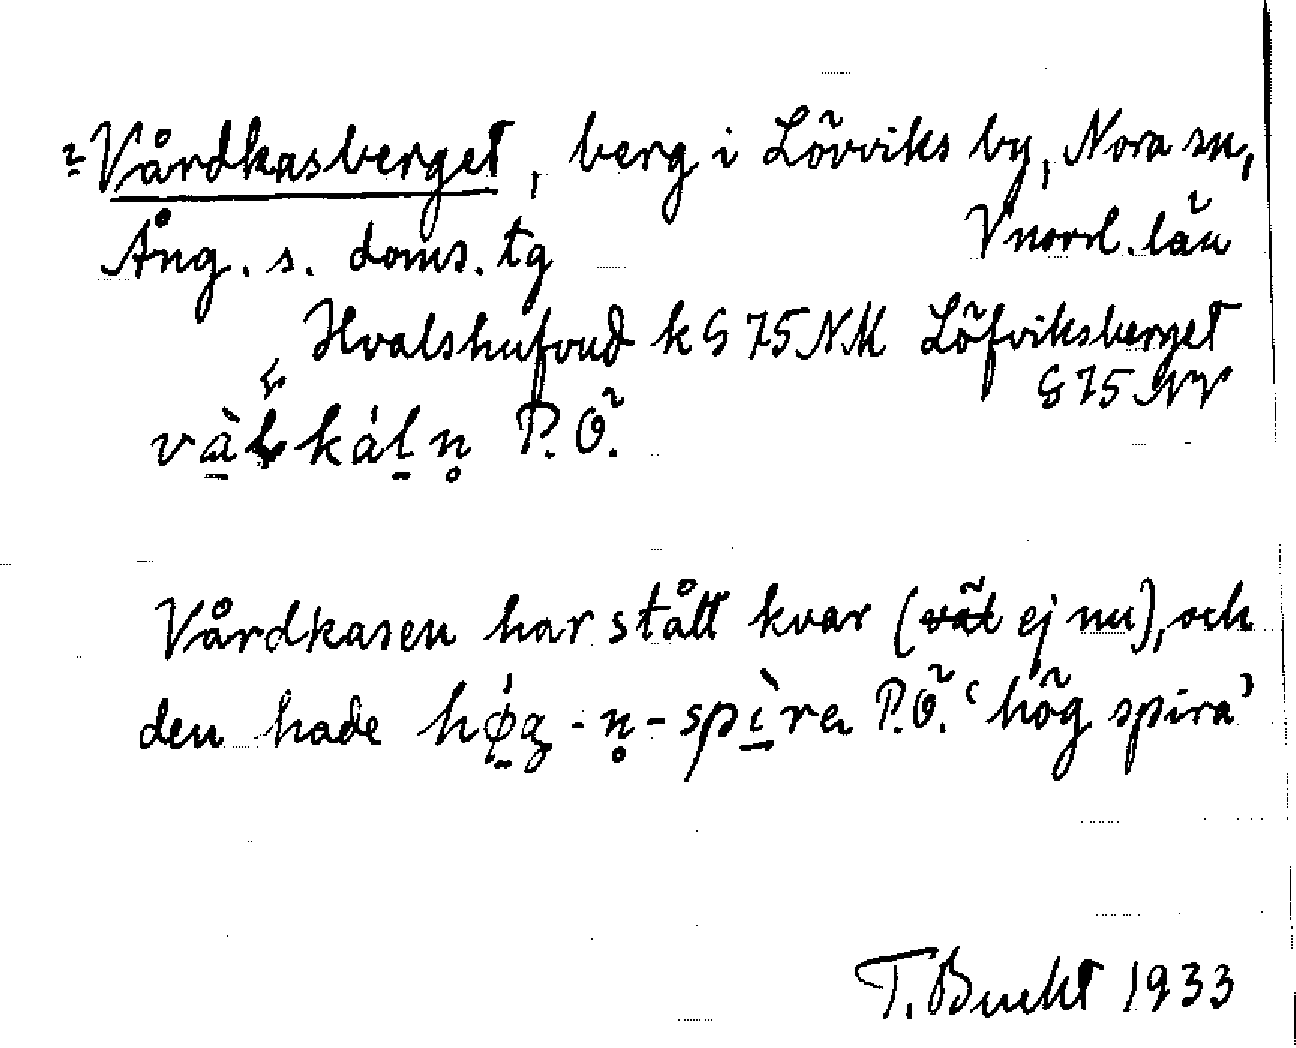 2 Vårdkasberget, berg i Lövviks by, Nora sn,
Ång. s. doms. tg Vnorrl. län
Hvalshufvud k G 75 NM Löfviksberget
G 75 NV
P.Ö.
Vårdkasen har stått kvar (ej nu), och
den hade hø̀g-n̥-spìra P.Ö. ‘hög spira’
T. Bucht 1933